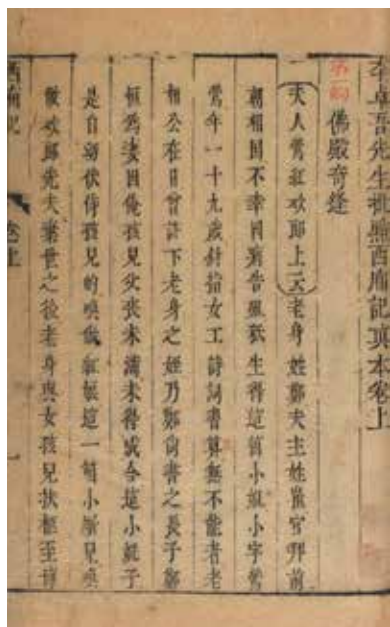 李卓吾先生批點西廂記真本卷上
第一齣 佛殿奇逢
夫人鶯紅歡郎上云老身姓鄭夫主姓崔官拜前
朝相國不幸因病告殂秪生得這箇小姐小字鶯
鶯年一十九歲針指女工詩詞書算無不能者老
相公在日曾許下老身之姪乃鄭尚書之長子鄭
恒為妻因俺孩兒父喪未滿未得成合這小妮子
是自幼伏侍孩兒的喚做紅娘這一箇小厮兒喚
做歡郎先夫棄世之後老身與女孩兒扶柩至博
西廂記
卷上
一